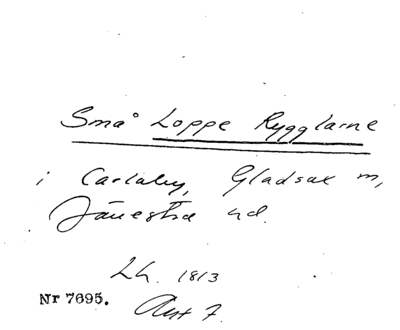 Små Loppe Rygglarne
i Carlaby, Gladsax m,
Järrestra hd.
Lh. 1813
Nr 7695. Akt 7.